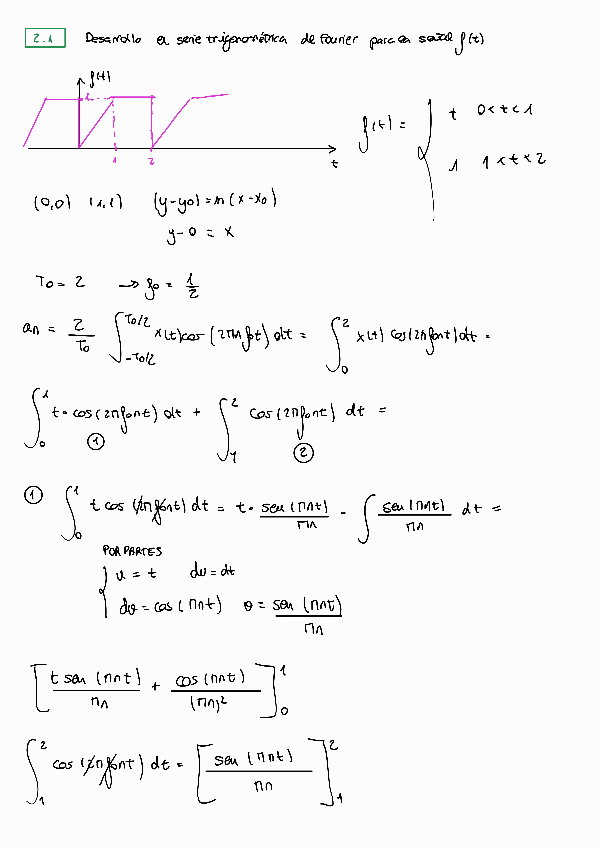 2.1 Desarrollo en serie trigonométrica de Fourier para la señal f(t)
f(t)
1
1 2 t
f(t) = { t 0<t<1
1 1<t<2
(0,0) (1,1) (y-y0) = m (x-x0)
y-0 = x
T0 = 2 → f0 = 1/2
an = 2/T0 ∫_{-T0/2}^{T0/2} x(t) cos (2πn f0t) dt = ∫_0^2 x(t) cos(2πf0nt) dt =
∫_0^1 t · cos(2πf0nt) dt + ∫_1^2 cos(2πf0nt) dt =
① ②
① ∫_0^1 t cos (2πf0nt) dt = t · sen(πnt)/πn - ∫ sen(πnt)/πn dt =
POR PARTES
{ u = t du = dt
dv = cos(πnt) v = sen(πnt)/πn
[ t sen(πnt)/πn + cos(πnt)/(πn)² ]_0^1
∫_1^2 cos(2πf0nt) dt = [ sen(πnt)/πn ]_1^2